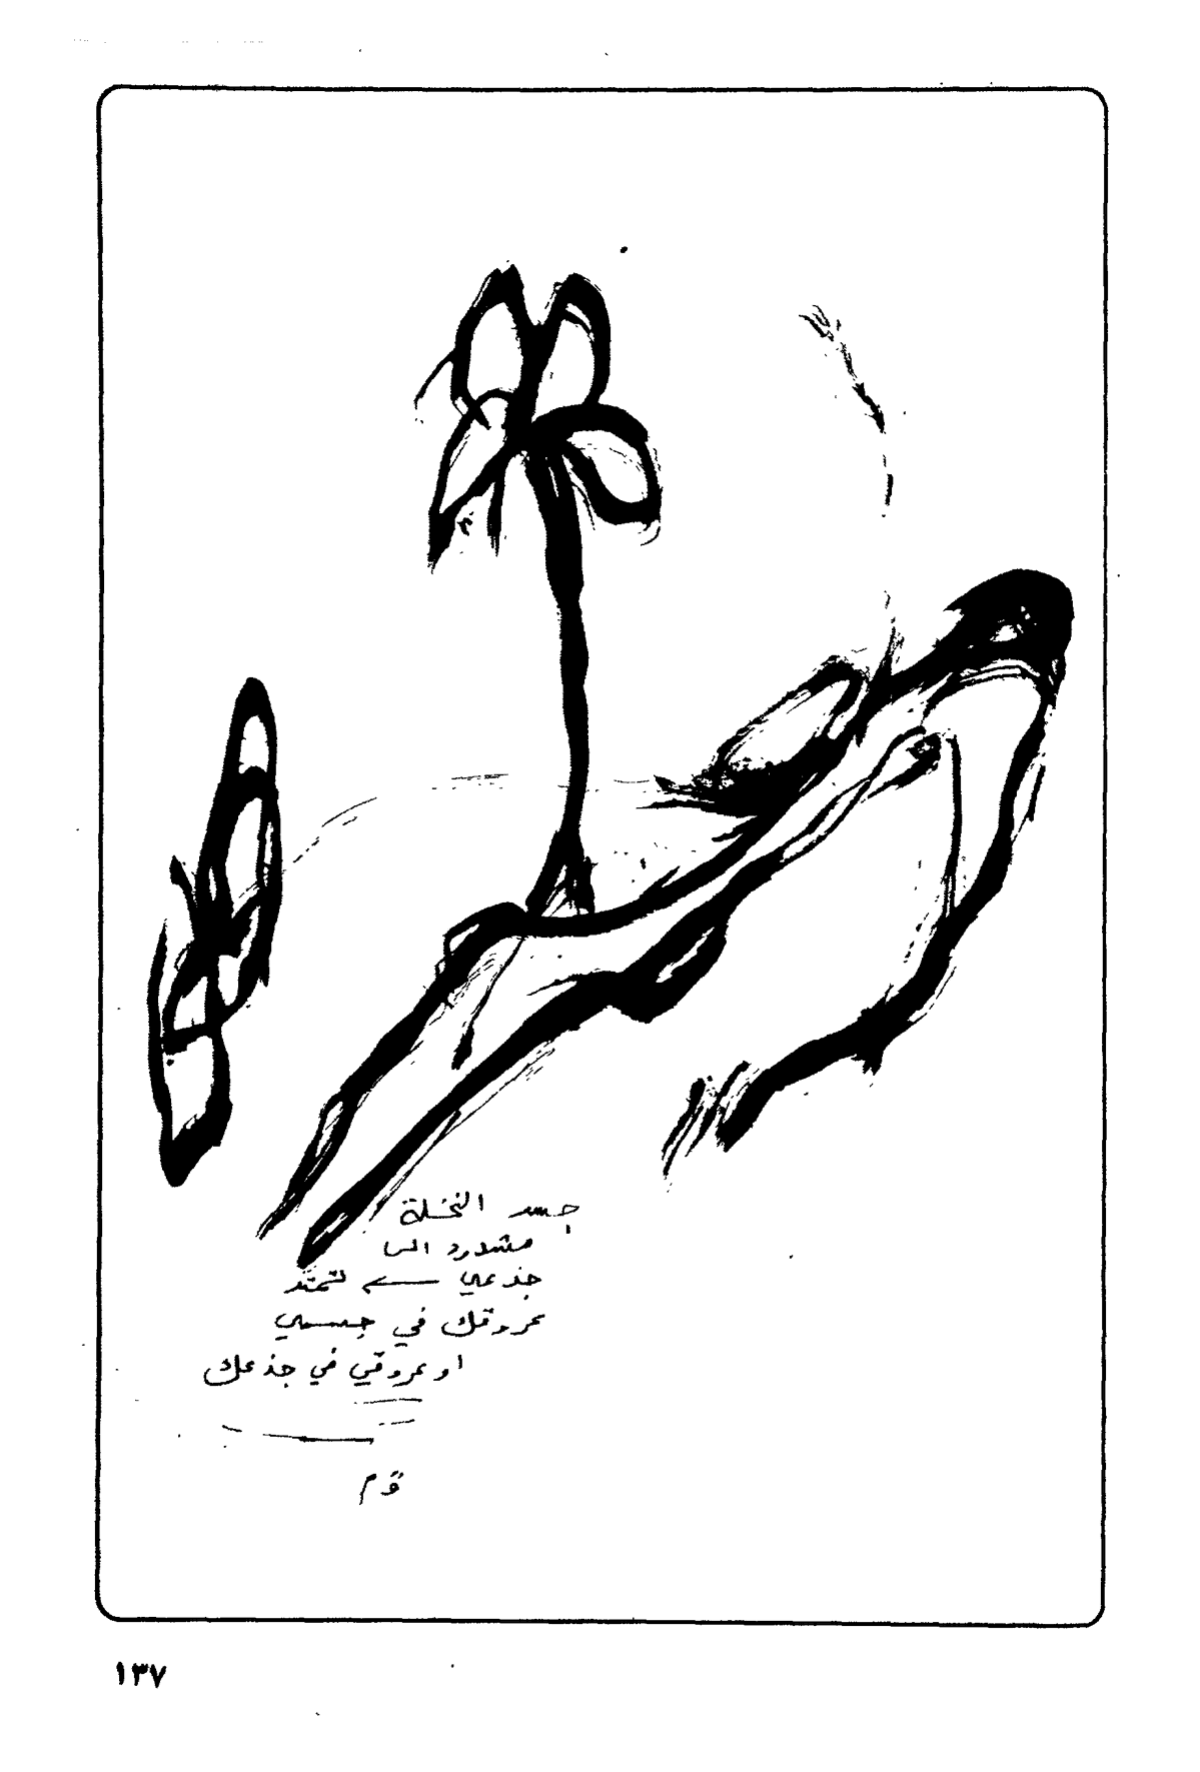 جسد النخلة
مشدود الى
جذعي لتمتد
عروقك في جسمي
او عروقي في جذعك
١٣٧